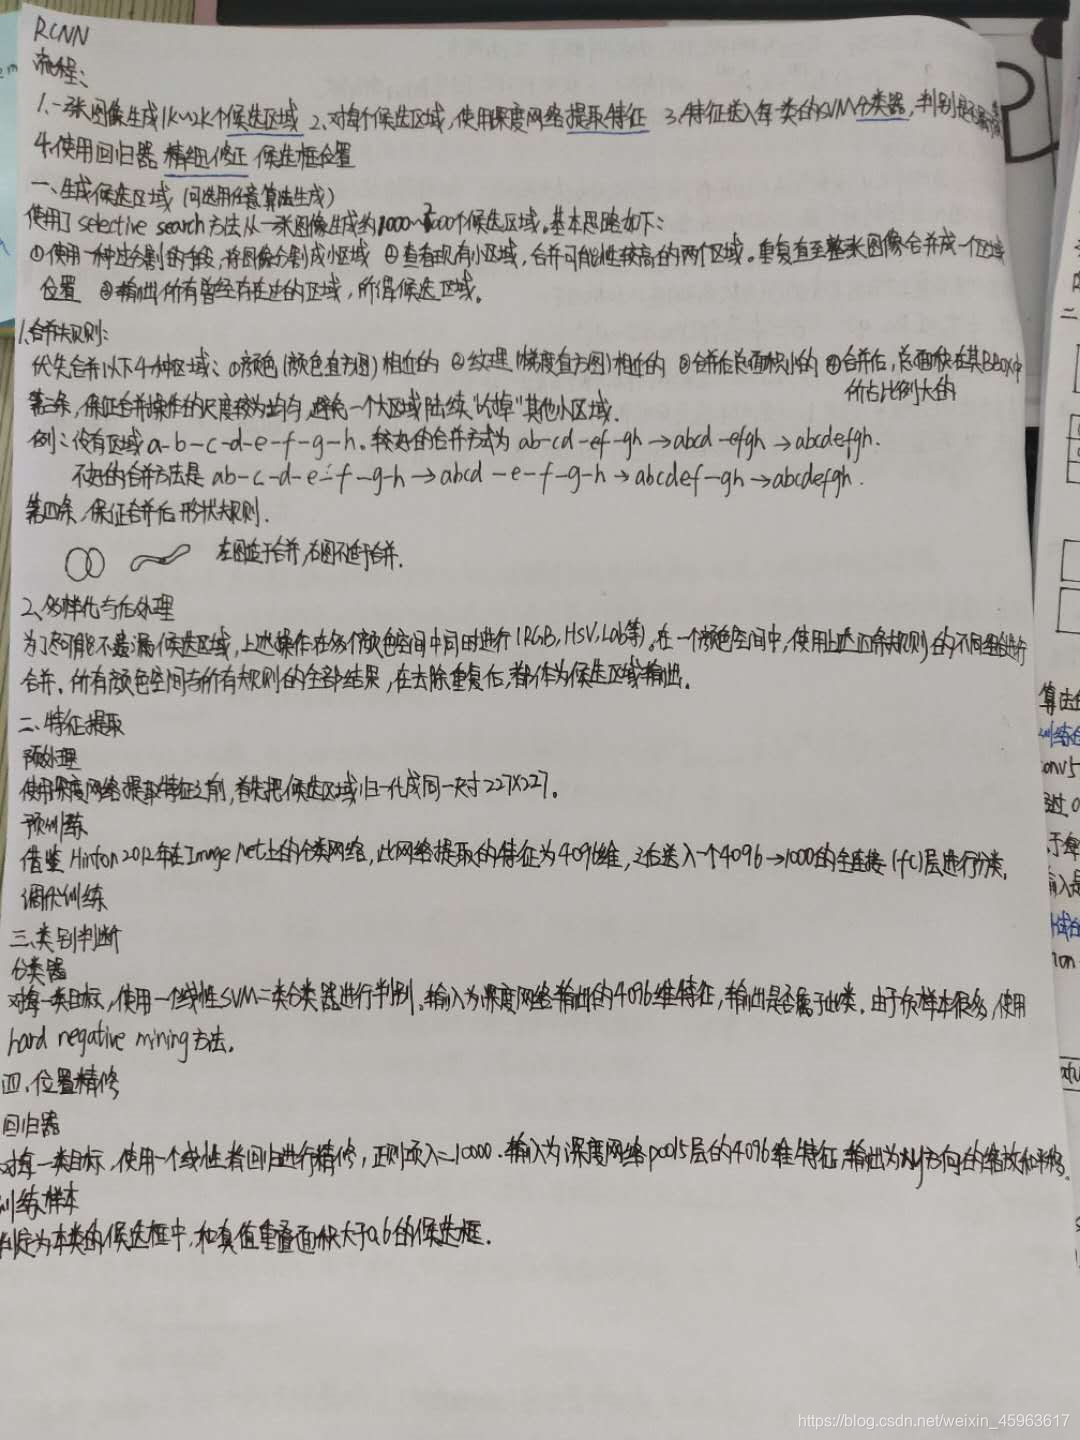 RCNN
流程:
1.一张图像生成1k~2k个候选区域 2.对每个候选区域,使用深度网络提取特征 3.特征送入每一类的SVM分类器,判别是否
4.使用回归器精细修正候选框位置
一、生成候选区域 (可选用任意算法生成)
使用了selective search方法从一张图像生成约1000~2000个候选区域。基本思路如下:
①使用一种过分割的手段,将图像分割成小区域 ②查看现有小区域,合并可能性较高的两个区域。重复直至整张图像合并成一个区域
位置 ③输出所有曾经存在过的区域,所谓候选区域。
1.合并规则:
优先合并以下4种区域:①颜色(颜色直方图)相近的 ②纹理(梯度直方图)相近的 ③合并后总面积小的 ④合并后,总面积在其BBOX中
所占比例大的
第三条,保证合并操作的尺度较为均匀,避免一个大区域陆续“吃掉”其他小区域.
例:设有区域a-b-c-d-e-f-g-h.较好的合并方式为 ab-cd-ef-gh→abcd-efgh→abcdefgh.
不好的合并方法是 ab-c-d-e-f-g-h→abcd-e-f-g-h→abcdef-gh→abcdefgh.
第四条,保证合并后形状规则.
左图适于合并,右图不适于合并.
2、多样化与后处理
为了尽可能不遗漏候选区域,上述操作在多个颜色空间中同时进行(RGB,HSV,Lab等)。在一个颜色空间中,使用上述四条规则的不同组合进行
合并。所有颜色空间与所有规则的全部结果,在去除重复后,都作为候选区域输出。
二、特征提取
预处理
使用深度网络提取特征之前,首先把候选区域归一化成同一尺寸227X227。
预训练
借鉴Hinton 2012年在Image Net上的分类网络,此网络提取的特征为4096维,之后送入一个4096→1000的全连接(fc)层进行分类。
调优训练
三.类别判断
分类器
对每一类目标,使用一个线性SVM二类分类器进行判别。输入为深度网络输出的4096维特征,输出是否属于此类。由于负样本很多,使用
hard negative mining方法。
四.位置精修
回归器
对每一类目标,使用一个线性脊回归进行精修,正则项λ=10000.输入为深度网络pool5层的4096维特征,输出为xy方向的缩放和平移。
训练样本
判定为本类的候选框中,和真值重叠面积大于0.6的候选框.
二
算法
训练
conv5
输入是
https://blog.csdn.net/weixin_45963617